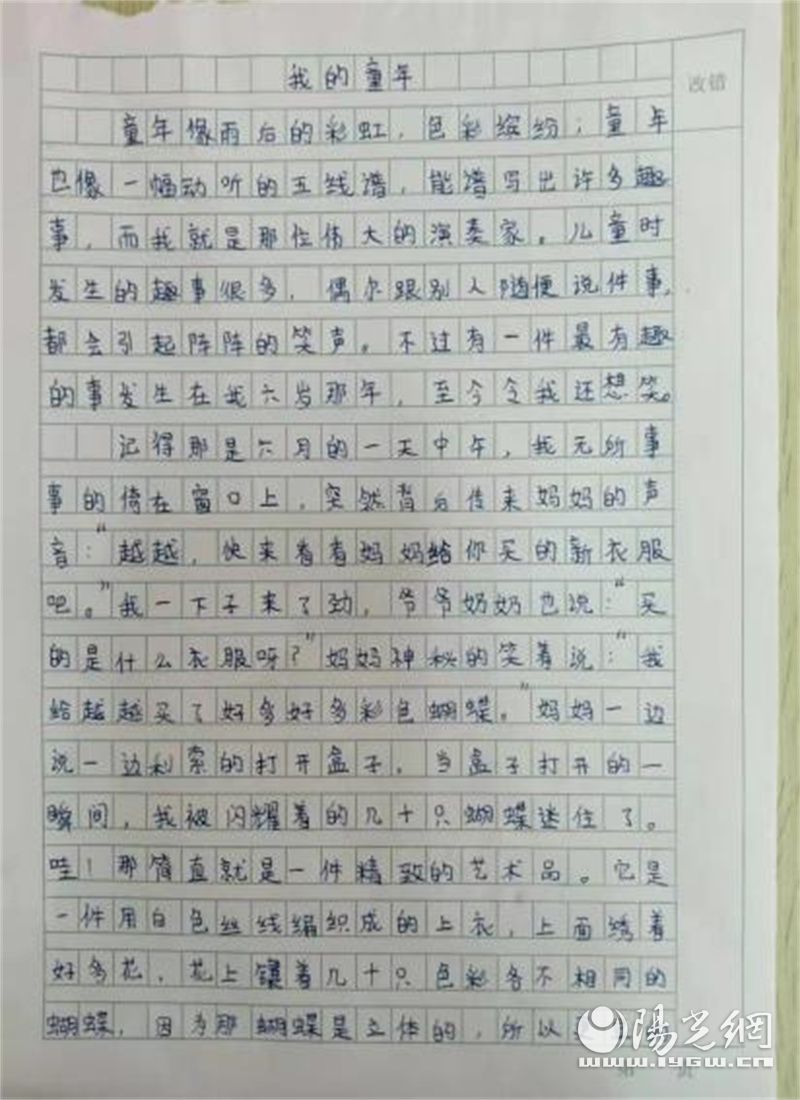 我的童年
改错
童年像雨后的彩虹，色彩缤纷；童年
也像一幅动听的五线谱，能谱写出许多趣
事，而我就是那位伟大的演奏家。儿童时
发生的趣事很多，偶尔跟别人随便说件事，
都会引起阵阵的笑声。不过有一件最有趣
的事发生在我六岁那年，至今令我还想笑。
记得那是六月的一天中午，我无所事
事的倚在窗口上，突然背后传来妈妈的声
音：“越越，快来看看妈妈给你买的新衣服
吧。”我一下子来了劲，爷爷奶奶也说：“买
的是什么衣服呀？”妈妈神秘的笑着说：“我
给越越买了好多好多彩色蝴蝶。”妈妈一边
说一边利索的打开盒子，当盒子打开的一
瞬间，我被闪耀着的几十只蝴蝶迷住了。
哇！那简直就是一件精致的艺术品。它是
一件用白色丝线编织成的上衣，上面绣着
好多花，花上镶着几十只色彩各不相同的
蝴蝶，因为那蝴蝶是立体的，所以
陽光網
www.iygw.cn
第 页